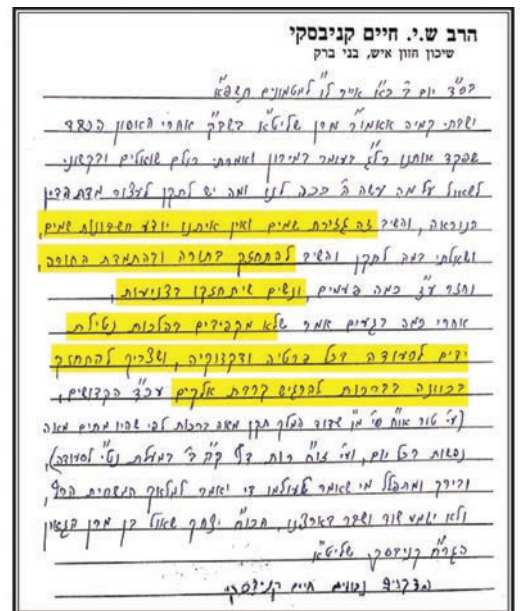 הרב ש.י. חיים קניבסקי
שיכון חזון איש, בני ברק
בס"ד יום ב' כ"א אייר ל"ו למטמונים תשפ"א
ישבתי קמיה אאמו"ר מרן שליט"א בשב"ק אחרי האסון הכבד
שפקד אותנו בל"ג בעומר במירון ואמרתי כולם שואלים ובקשוני
לשאול על מה עשה ה' ככה לנו ומה יש לתקן לעצור מדת הדין
הנוראה, והשיב זה גזירת שמים ואין איתנו יודע חשבונות שמים,
ושאלתי במה לתקן והשיב להתחזק בתורה ובהתמדת התורה,
וחזר ע"ז כמה פעמים, ונשים שיתחזקו בצניעות,
אחרי כמה רגעים אמר שלא מקפידים בהלכות נטילת
ידים לסעודה בכל פרטיה ודקדוקיה, ושצריך להתחזק
בכוונה בברכות להרגיש ברכת אלקים עכ"ד הקדושים,
(עי' טור או"ח סי' מ"ו שדוד המלך תקן מאה ברכות לפי שהיו מתים מאה
נפשות בכל יום, ועי' זו"ח רות דף ק"ה ב' במעלת נט"י לסעודה),
ובירך ומתפלל מי שאמר לעולמו די יאמר למלאך המשחית הרף,
ולא ישמע שוד ושבר בארצנו, הכו"ח יצחק שאול בן מרן הגאון
הגר"ח קניבסקי שליט"א
הדברים נכונים חיים קניבסקי